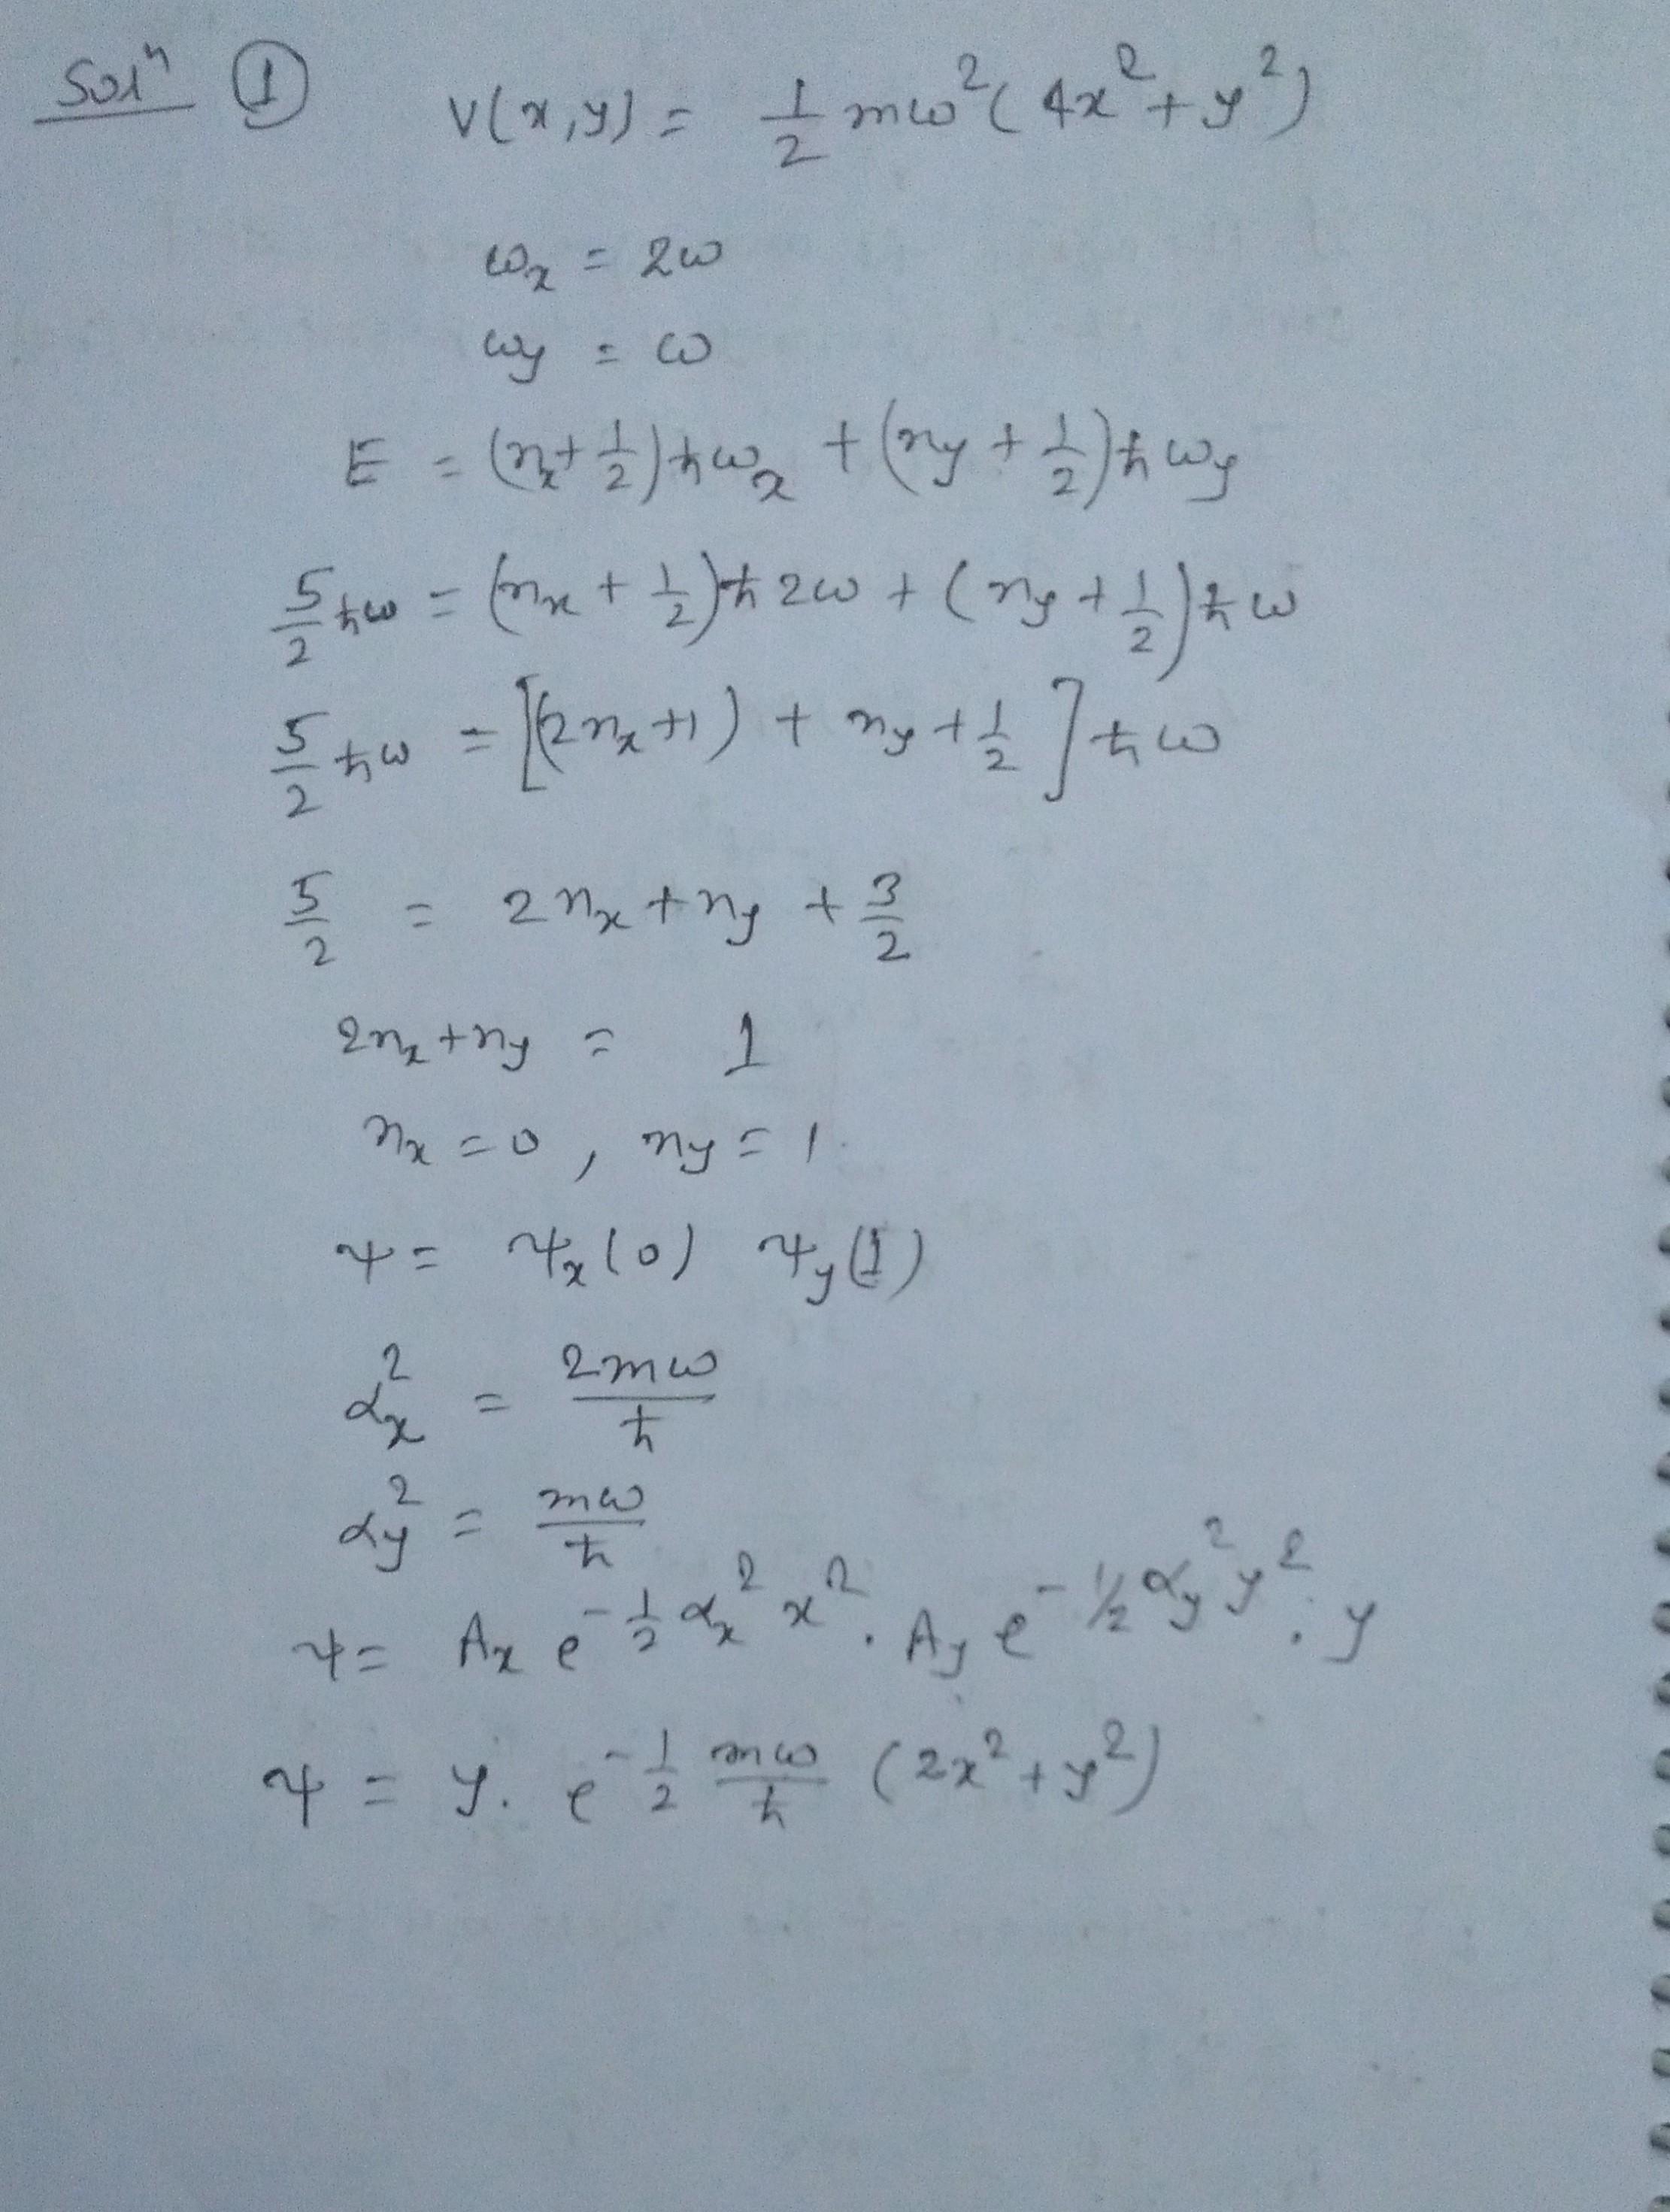 Solⁿ ① V(x,y) = 1/2 mω²(4x²+y²)
ωx = 2ω
ωy = ω
E = (nx+1/2)ħωx + (ny+1/2)ħωy
5/2 ħω = (nx+1/2)ħ2ω + (ny+1/2)ħω
5/2 ħω = [(2nx+1) + ny+1/2]ħω
5/2 = 2nx+ny+3/2
2nx+ny = 1
nx=0, ny=1.
ψ = ψx(0) ψy(1)
αx² = 2mω/ħ
αy² = mω/ħ
ψ = Ax e^(-1/2 αx² x²) . Ay e^(-1/2 αy² y²) . y
ψ = y. e^(-1/2 mω/ħ (2x²+y²))